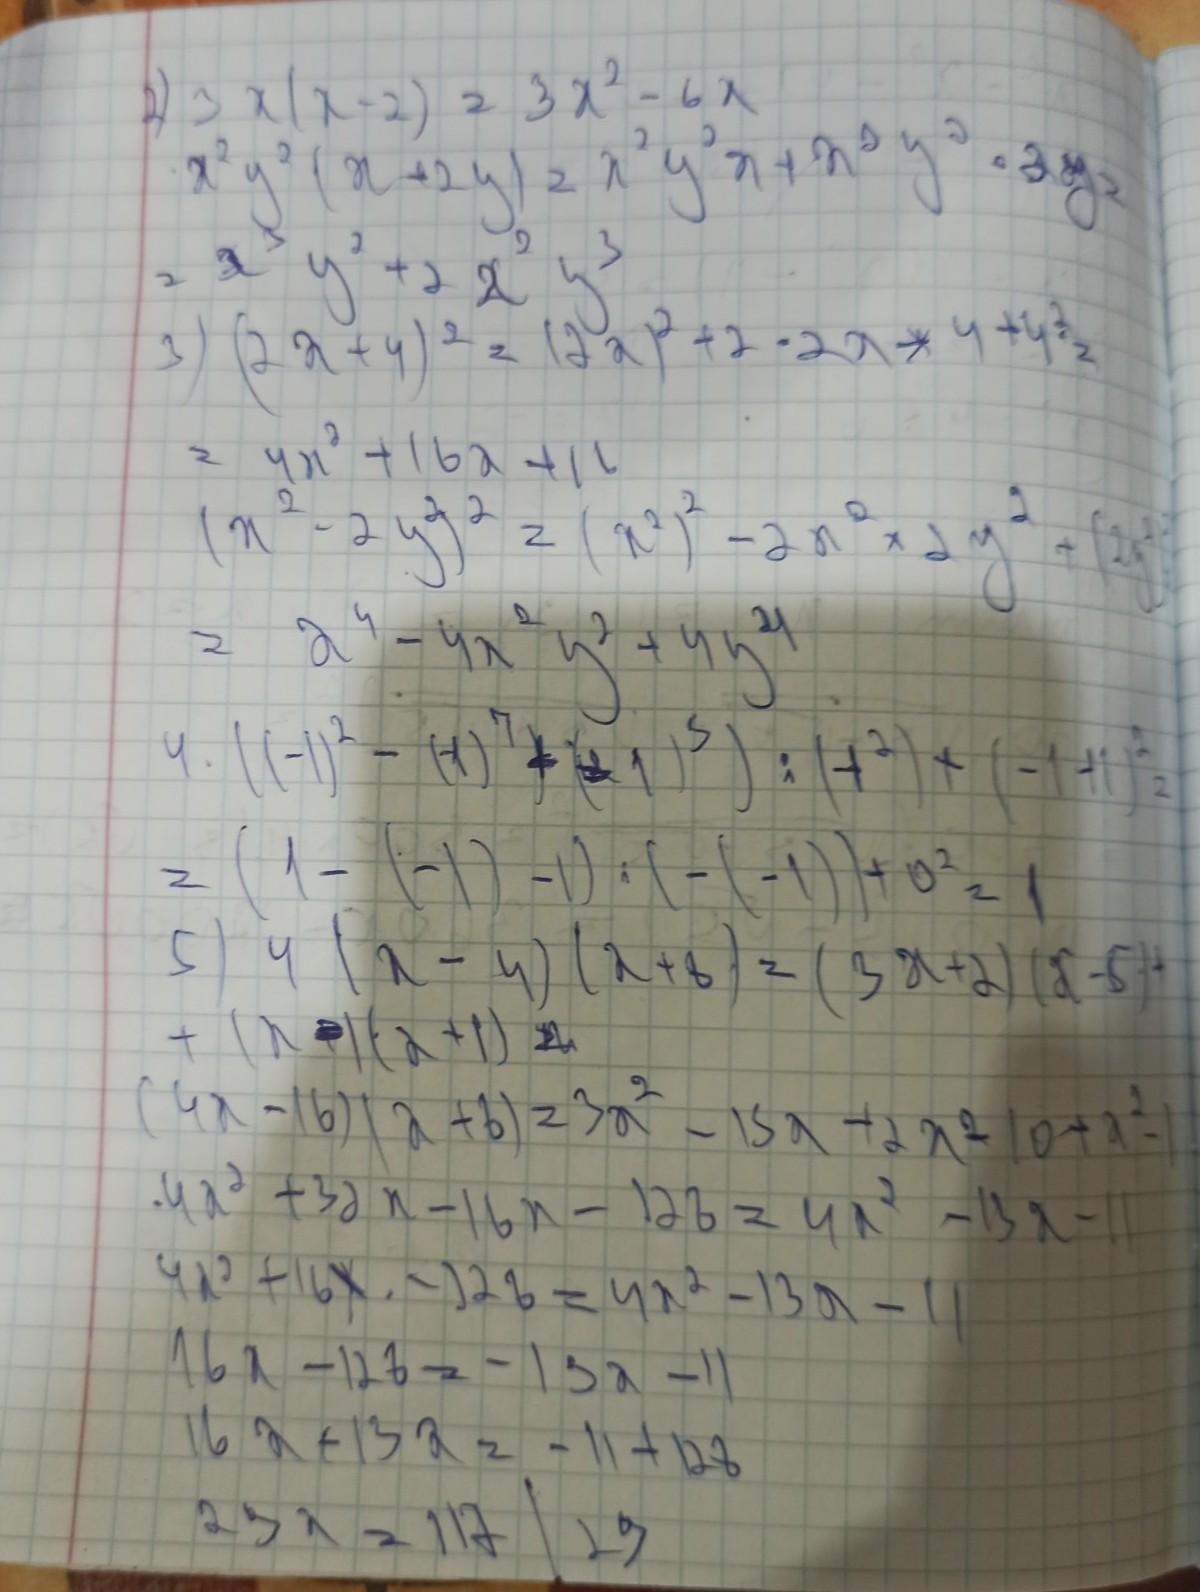 2) 3x(x-2) = 3x² - 6x
x²y²(x+2y) = x²y²x + x²y² · 2y =
= x³y² + 2x²y³
3) (2x+4)² = (2x)² + 2 · 2x * 4 + 4² =
= 4x² + 16x + 16
(x² - 2y²)² = (x²)² - 2x² × 2y² + (2y²)²
= x⁴ - 4x²y² + 4y⁴
4. ((-1)² - (-1)⁷ 1)⁵) : (-1²) + (-1+1)² =
= (1 - (-1) - 1) : (-(-1)) + 0² = 1
5) 4(x-4)(x+8) = (3x+2)(x-5)+
+ (x-1)(x+1)
(4x-16)(x+8) = 3x² - 15x + 2x - 10 + x² - 1
4x² + 32x - 16x - 128 = 4x² - 13x - 11
4x² + 16x - 128 = 4x² - 13x - 11
16x - 128 = -13x - 11
16x + 13x = -11 + 128
29x = 117 / 29